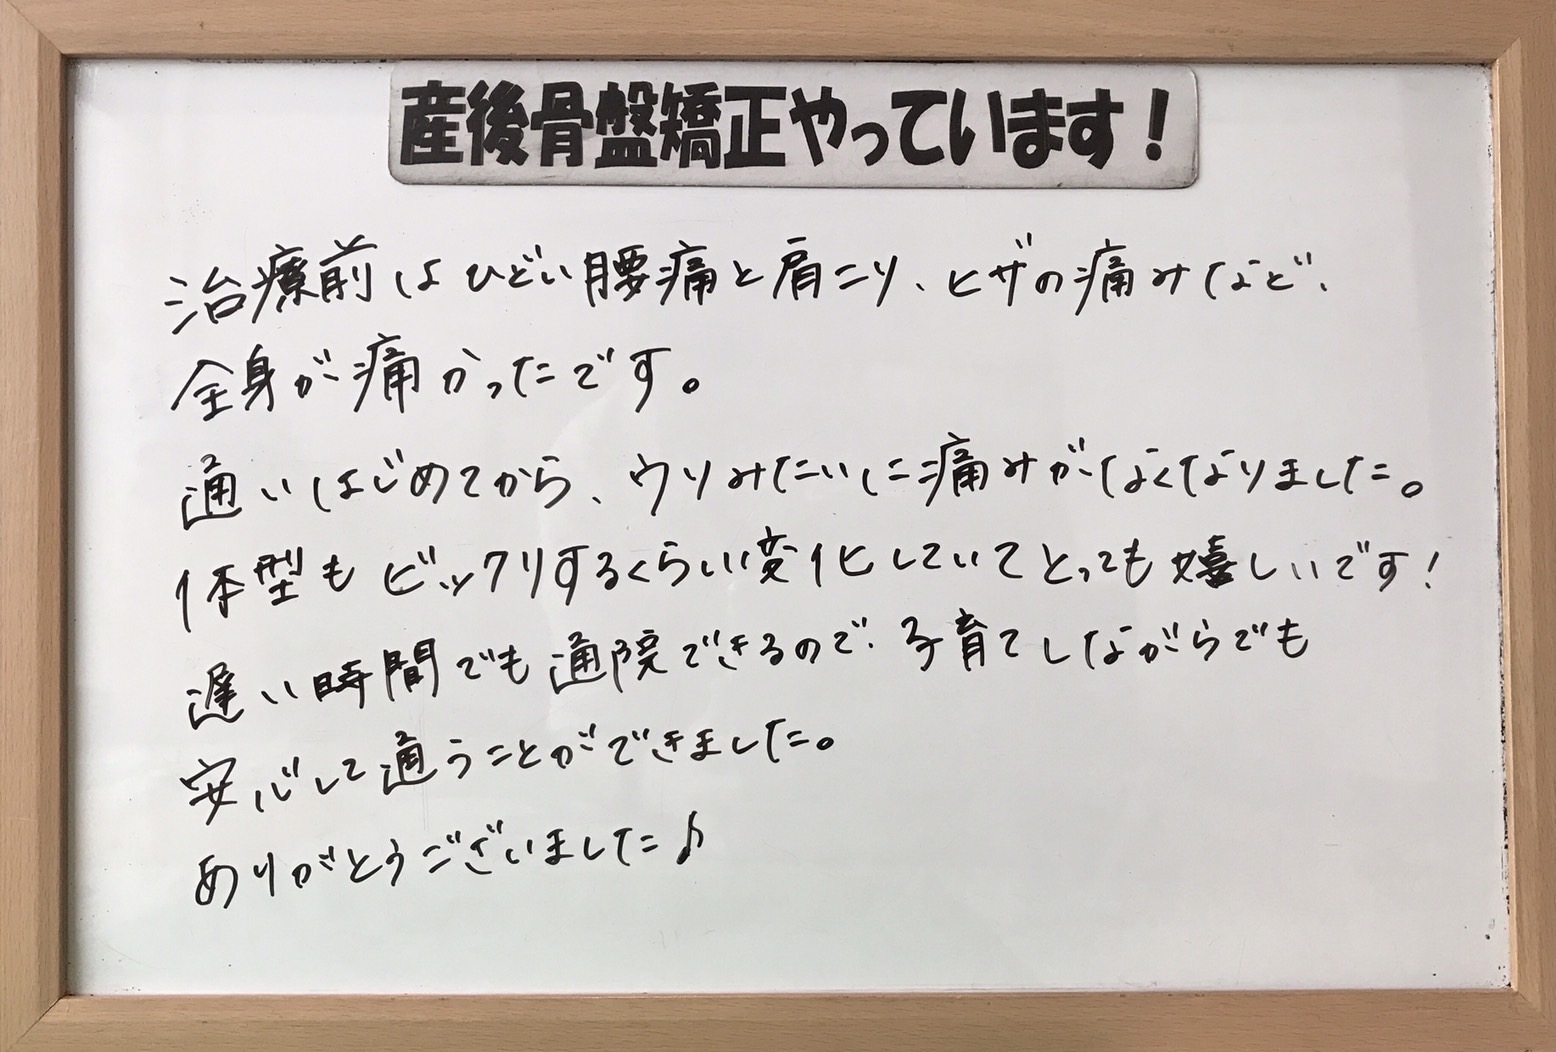 産後骨盤矯正やっています!
治療前はひどい腰痛と肩こり、ヒザの痛みなど、
全身が痛かったです。
通いはじめてから、ウソみたいに痛みがなくなりました。
体型もビックリするくらい変化していてとっても嬉しいです!
遅い時間でも通院できるので、子育てしながらでも
安心して通うことができました。
ありがとうございました♪